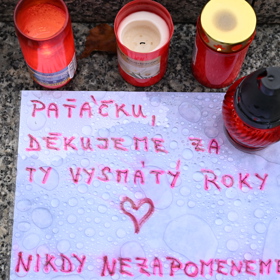 PAŤÁČKU,
DĚKUJEME ZA
TY VYSMÁTÝ ROKY
NIKDY NEZAPOMENEME